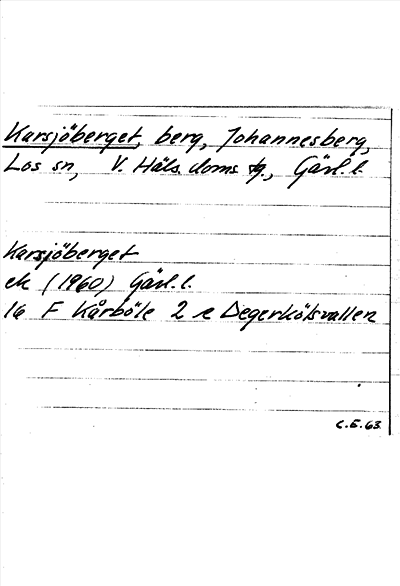 Karsjöberget, berg, Johannesberg,
Los sn, V. Häls. doms tg., Gävl. l.
Karsjöberget
ek (1960) Gävl. l.
16 F Kårböle 2 e Degerkölsvallen
C.E.63.